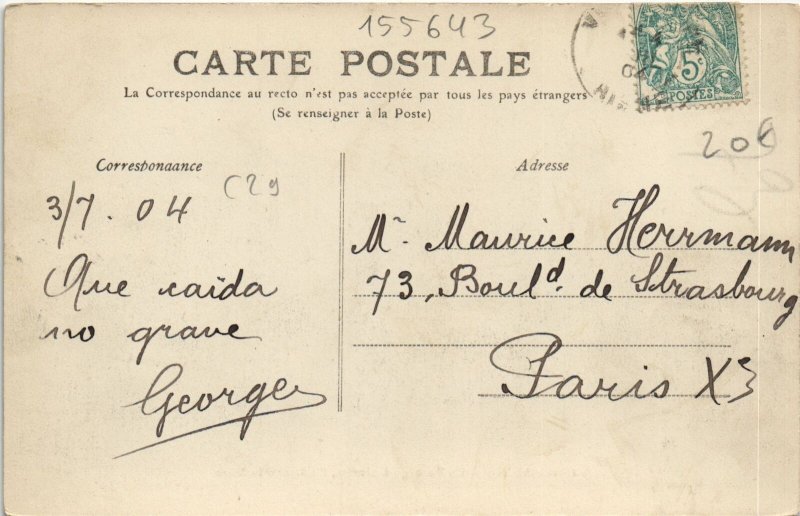 155643
CARTE POSTALE
La Correspondance au recto n'est pas acceptée par tous les pays étrangers
(Se renseigner à la Poste)
5c
POSTES
20€
Correspondance
C29
3/7. 04
Que caïda
no grave
Georges
Adresse
Mr. Maurice Herrmann
73, Bould. de Strasbourg
Paris Xe